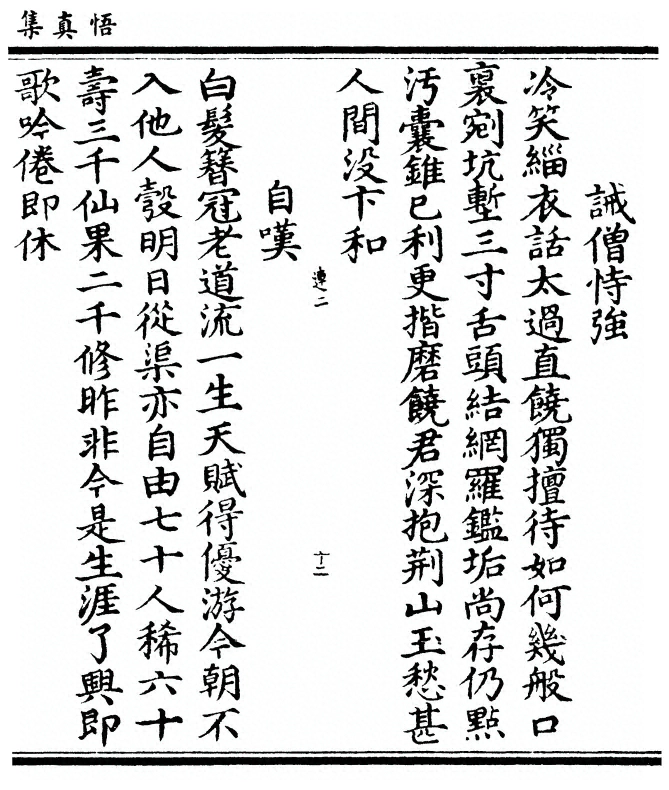 悟真集
誡僧恃強
冷笑緇衣話太過直饒獨擅待如何幾般口
裏剜坑塹三寸舌頭結網羅鑑垢尚存仍點
汚囊錐已利更揩磨饒君深抱荆山玉愁甚
人間没卞和
連二
十二
自嘆
白髮簪冠老道流一生天賦得優游今朝不
入他人彀明日從渠亦自由七十人稀六十
壽三千仙果二千修昨非今是生涯了興即
歌吟倦即休